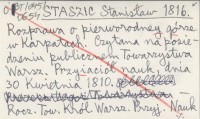 STASZIC Stanisław 1816.
Rozprawa o pierworodnej górze
w Karpatach. Czytana na posie-
dzeniu publicznem Towarzystwa
Warsz. Przyjaciół nauk, dnia
30 Kwietnia 1816.
Rocz. Tow. Król. Warsz. Przyj. Nauk